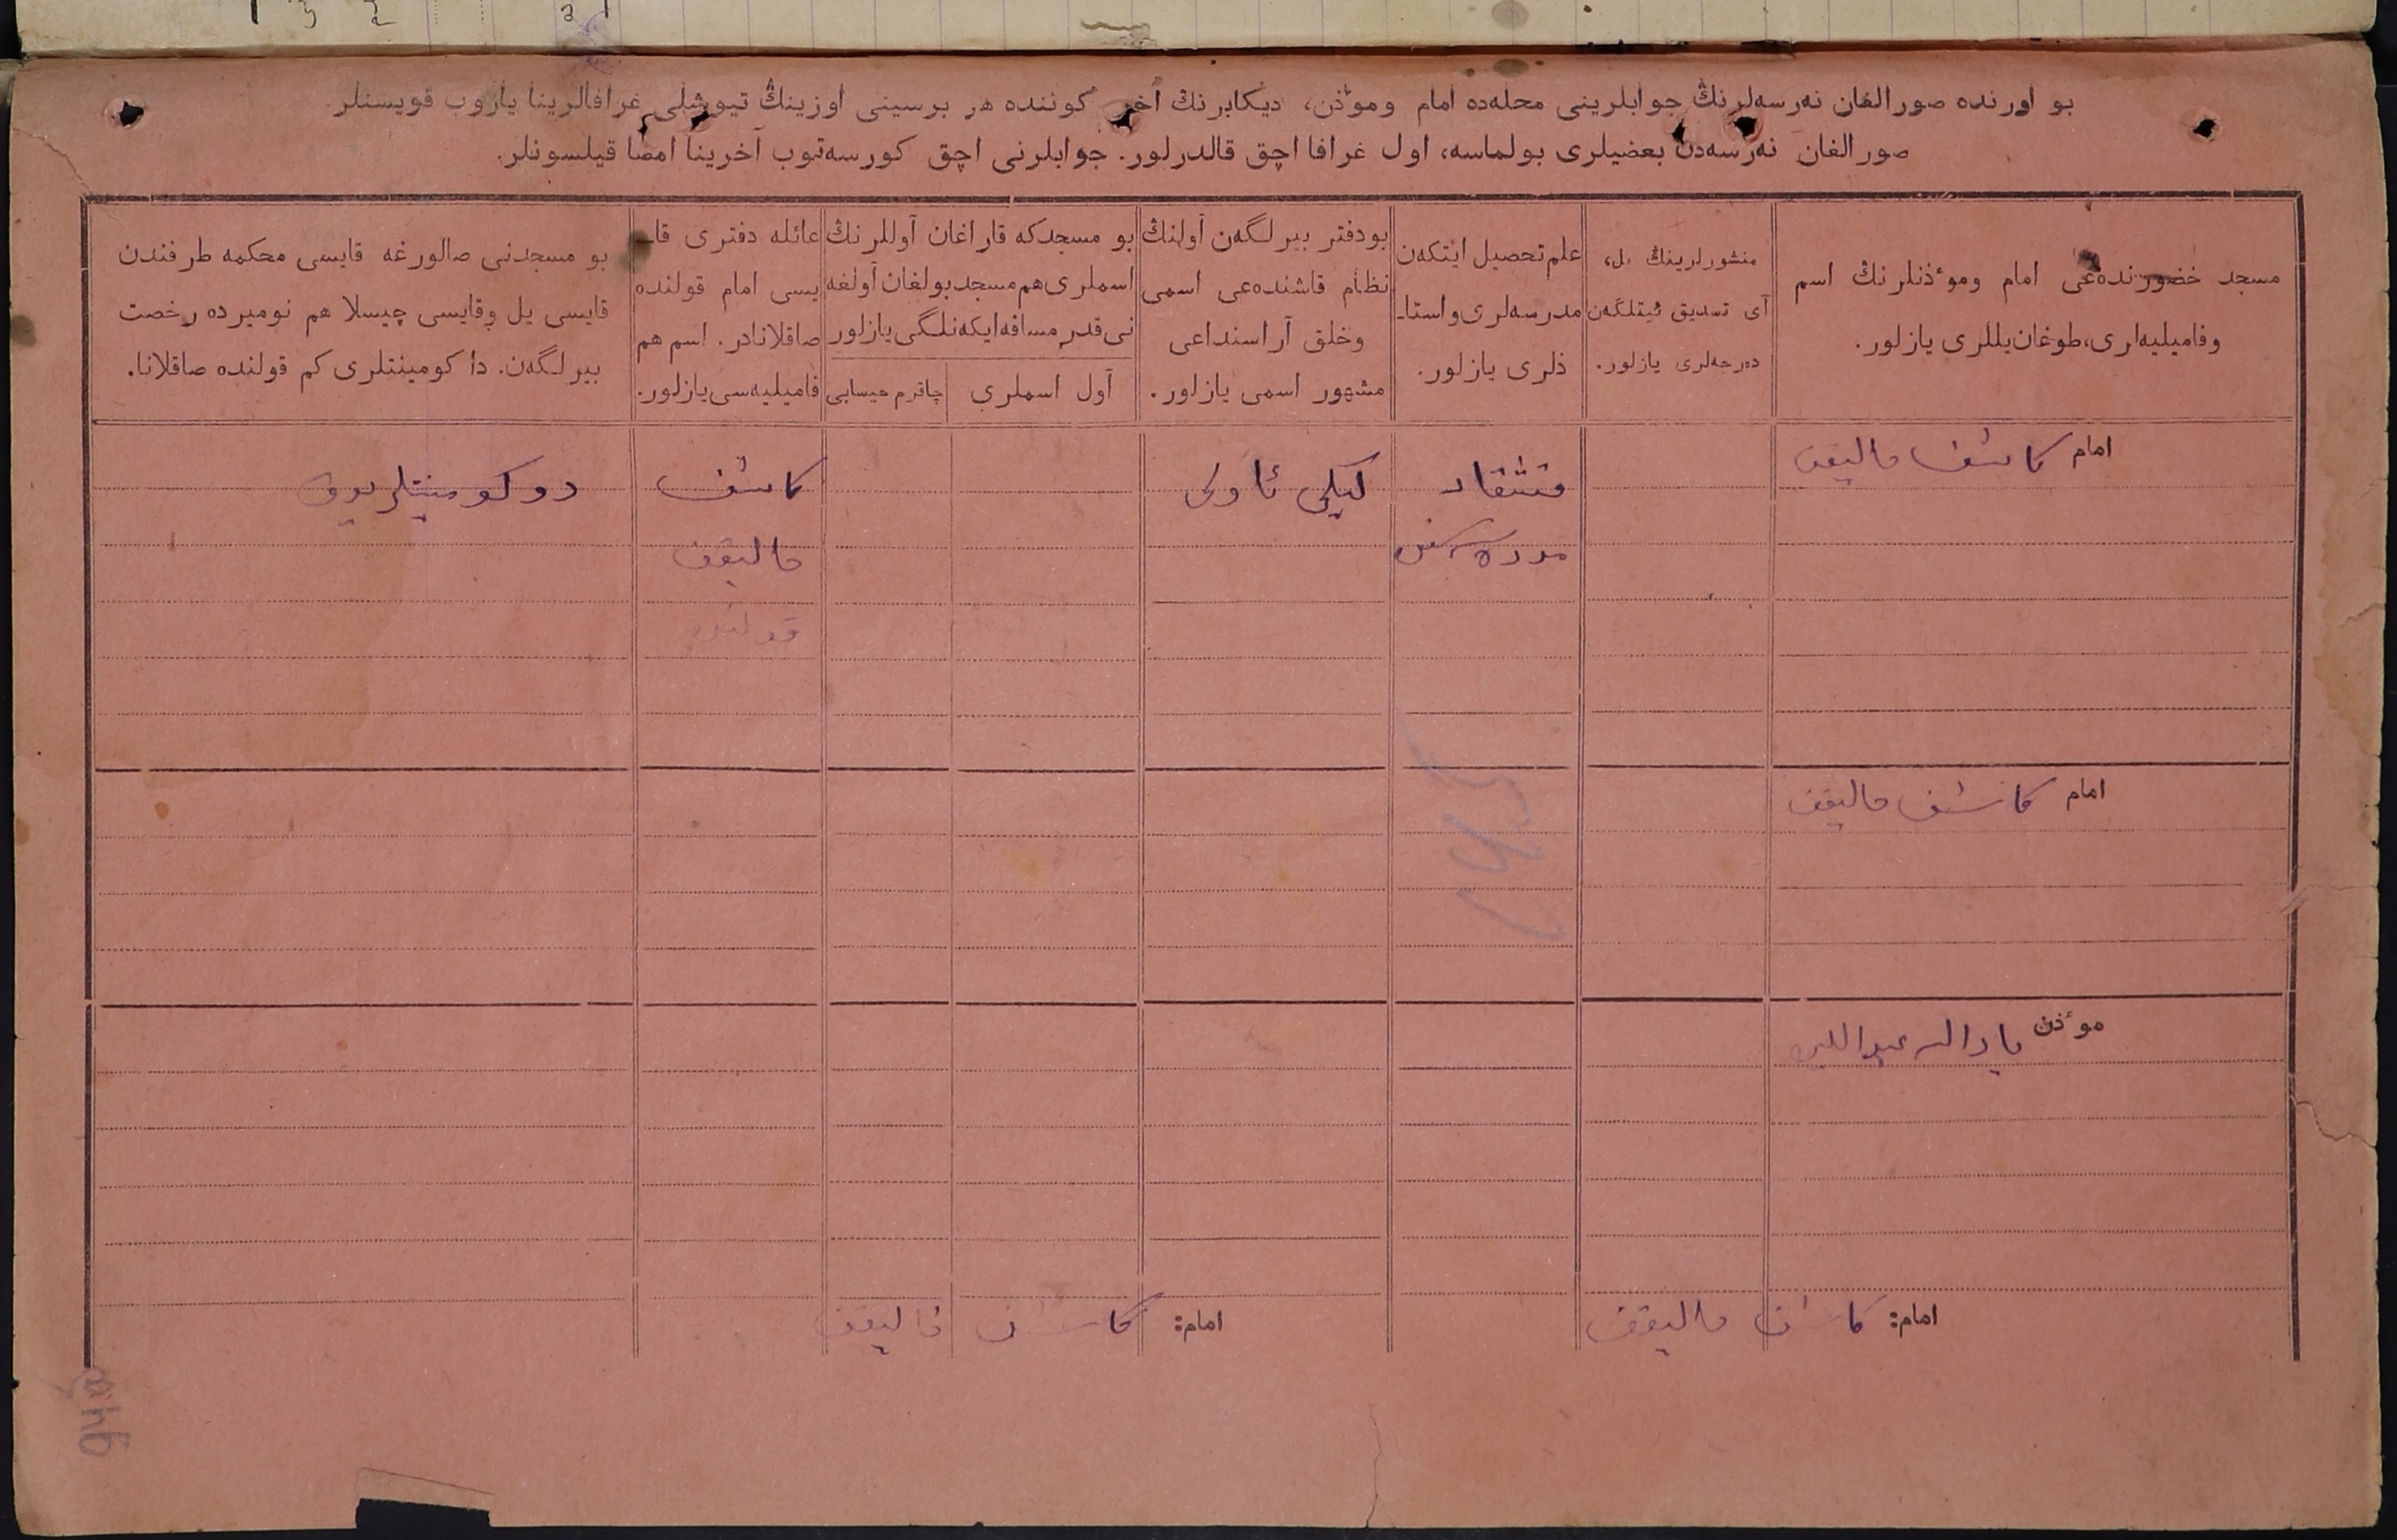 بو اورنده صورالغان نەرسەلرنڭ جوابلرینی محلەده امام وموٴذن، دیکابرنڭ آخر کوننده هر برسینی اوزینڭ تیوشلی غرافالرینا یازوب قویسنلر.
صورالغان نەرسەدن بعضیلری بولماسه، اول غرافا اچق قالدرلور. جوابلرنی اچق کورسەتوب آخرینا امضا قیلسونلر.
مسجد خضورندەغی امام وموٴذنلرنڭ اسم
وفامیلیەلری، طوغان یللری یازلور.
منشورلرینڭ یل،
آی تسدیق ئیتلگەن
دەرجەلری یازلور.
علم تحصیل ایتکەن
مدرسەلری و استا-
ذلری یازلور.
بو دفتر بیرلگەن آولنڭ
نظام قاشندەغی اسمی
وخلق آراسنداغی
مشهور اسمی یازلور.
بو مسجدکە قاراغان آوللرنڭ
اسملری هم مسجد بولغان آولغه
نی قدر مسافه ایکەنلگی یازلور
آول اسملری
چاقرم حیسابی
عائله دفتری قا-
یسی امام قولنده
صاقلانادر. اسم هم
فامیلیەسی یازلور.
بو مسجدنی صالورغه قایسی محکمه طرفندن
قایسی یل وقایسی چیسلا هم نومیرده رخصت
بیرلگەن. داکومینتلری کم قولنده صاقلانا.
امام کاشف مالیقف
لیکی ئاولی
کاشف
مالیقف
دوکومینتلر یوق
امام کاشف مالیقف
موٴذن
امام: کاشف مالیقف
امام: کاشف مالیقف